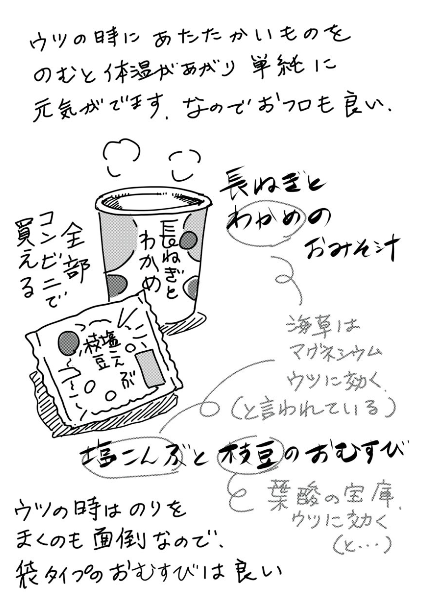 ウツの時に あたたかいものを
のむと体温があがり 単純に
元気がでます。なのでおフロも良い。
長ねぎと
わかめの
おみそ汁
全部
コンビニで
買える
長ねぎと
わかめ
塩こんぶ
枝豆
海草は
マグネシウム
ウツに効く
(と言われている)
塩こんぶと枝豆のおむすび
葉酸の宝庫
ウツに効く
(と…)
ウツの時はのりを
まくのも面倒なので、
袋タイプのおむすびは良い